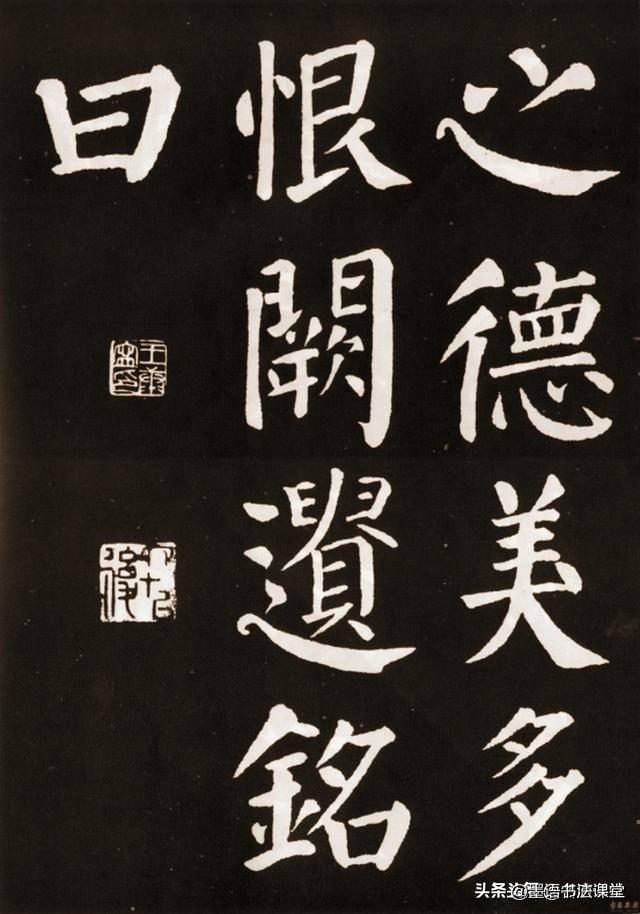 之德美多
恨闕遺銘
曰
头条 @墨语书法课堂